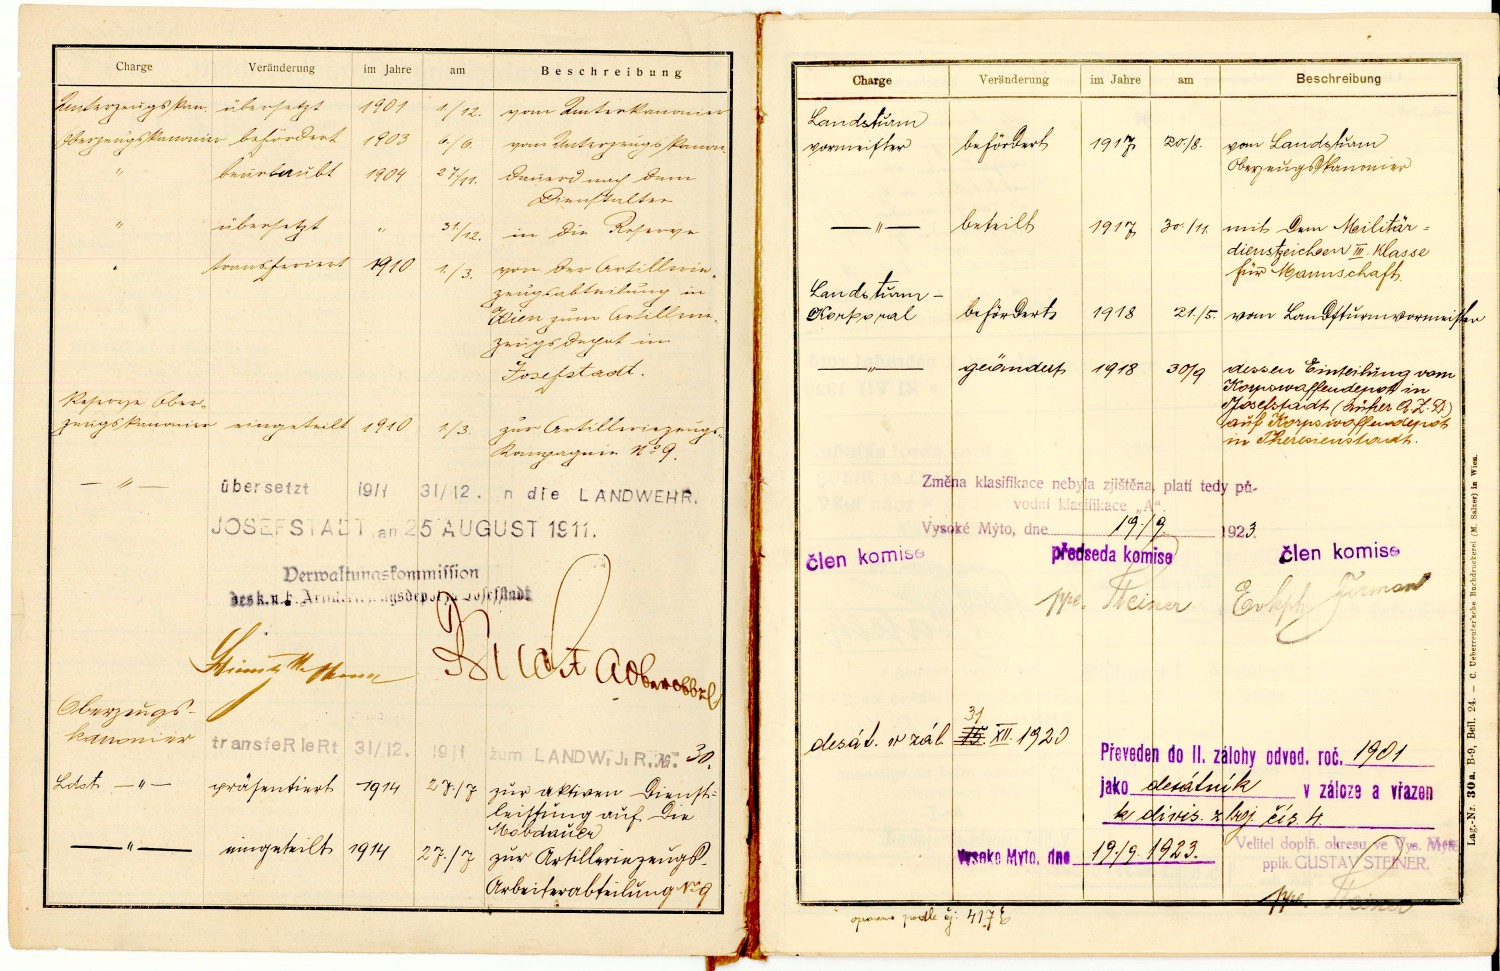 Charge Veränderung im Jahre am Beschreibung
Unterzeugskan. übersetzt 1901 1./12. vom Unterkanonier
Oberzeugskanonier befördert 1903 6./6. vom Unterzeugskanon.
" beurlaubt 1904 27/11. dauernd nach dem
Dienstalter
" übersetzt " 31/12. in die Reserve
" transferiert 1910 1./3. von der Artillerie-
zeugsabteilung in
Wien zum Artillerie-
zeugsdepot in
Josefstadt.
Reserve Ober-
zeugskanonier eingeteilt 1910 1/3. zur Artilleriezeugs-
kompagnie No 9.
— " — übersetzt 1911 31/12. n die LANDWEHR.
JOSEFSTADT, am 25 AUGUST 1911.
Verwaltungskommission
des k. u. k. Artilleriezeugsdepot zu Josefstadt
Oberzeugs-
kanonier transfeRieRt 31/12. 1911 zum LANDW. J. R. Nr. 30.
Ldst — " — präsentiert 1914 27./7 zur aktiven Dienst-
leistung auf die
Mobdauer
— " — eingeteilt 1914 27./7 zur Artilleriezeugs-
Arbeiterabteilung No 9
Charge Veränderung im Jahre am Beschreibung
Landsturm
vormeister befördert 1917 20./8. von Landsturm
Oberzeugskanonier
— " — beteilt 1917 30./11. mit dem Militär=
dienstzeichen III. Klasse
für Mannschaft.
Landsturm –
Korporal befördert 1918 21./5. vom Landsturmvormeister
— " — geändert 1918 30/9 dessen Einteilung vom
Korpswaffendepot in
Josefstadt (früher A. Z. D.)
auf Korpswaffendepot
in Theresienstadt.
Změna klasifikace nebyla zjištěna, platí tedy pů-
vodní klasifikace „A".
Vysoké Mýto, dne 19./9. 1923.
člen komise předseda komise člen komise
ppl. Steiner
31
desát. v zál. 15. XII. 1920
Převeden do II. zálohy odved. roč. 1901
jako desátník v záloze a vřazen
k divis. zbroj. čís. 4.
Vysoké Mýto, dne 19./9. 1923.
Velitel doplň. okresu ve Vys. Mýtě
pplk. GUSTAV STEINER.
ppl. Steiner
opraveno podle čj: 4173
Lag.-Nr. 30 a. B-9, Beil. 24. — C. Ueberreuter'sche Buchdruckerei (M. Salzer) in Wien.